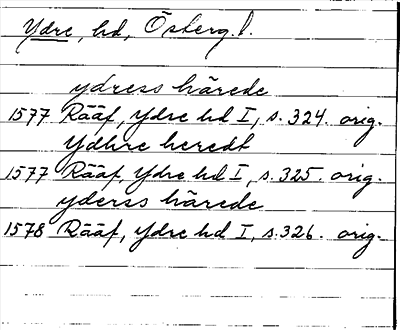 Ydre, hd, Österg.l.
ydress härede
1577 Rääf, Ydre hd I, s. 324. orig.
Ydhre heredt
1577 Rääf, Ydre hd I, s. 325. orig.
yderss härede
1578 Rääf, Ydre hd I, s. 326. orig.